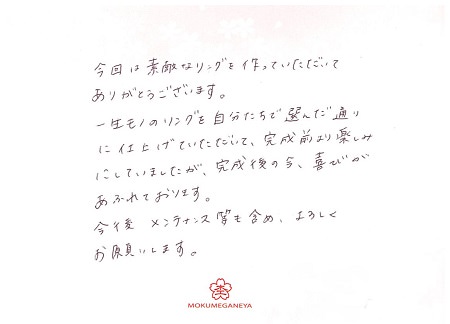 今回は素敵なリングを作っていただいて
ありがとうございます。
一生モノのリングを自分たちで選んだ通り
に仕上げていただいて、完成前より楽しみ
にしていましたが、完成後の今、喜びが
あふれております。
今後 メンテナンス等も含め、よろしく
お願いします。
MOKUMEGANEYA